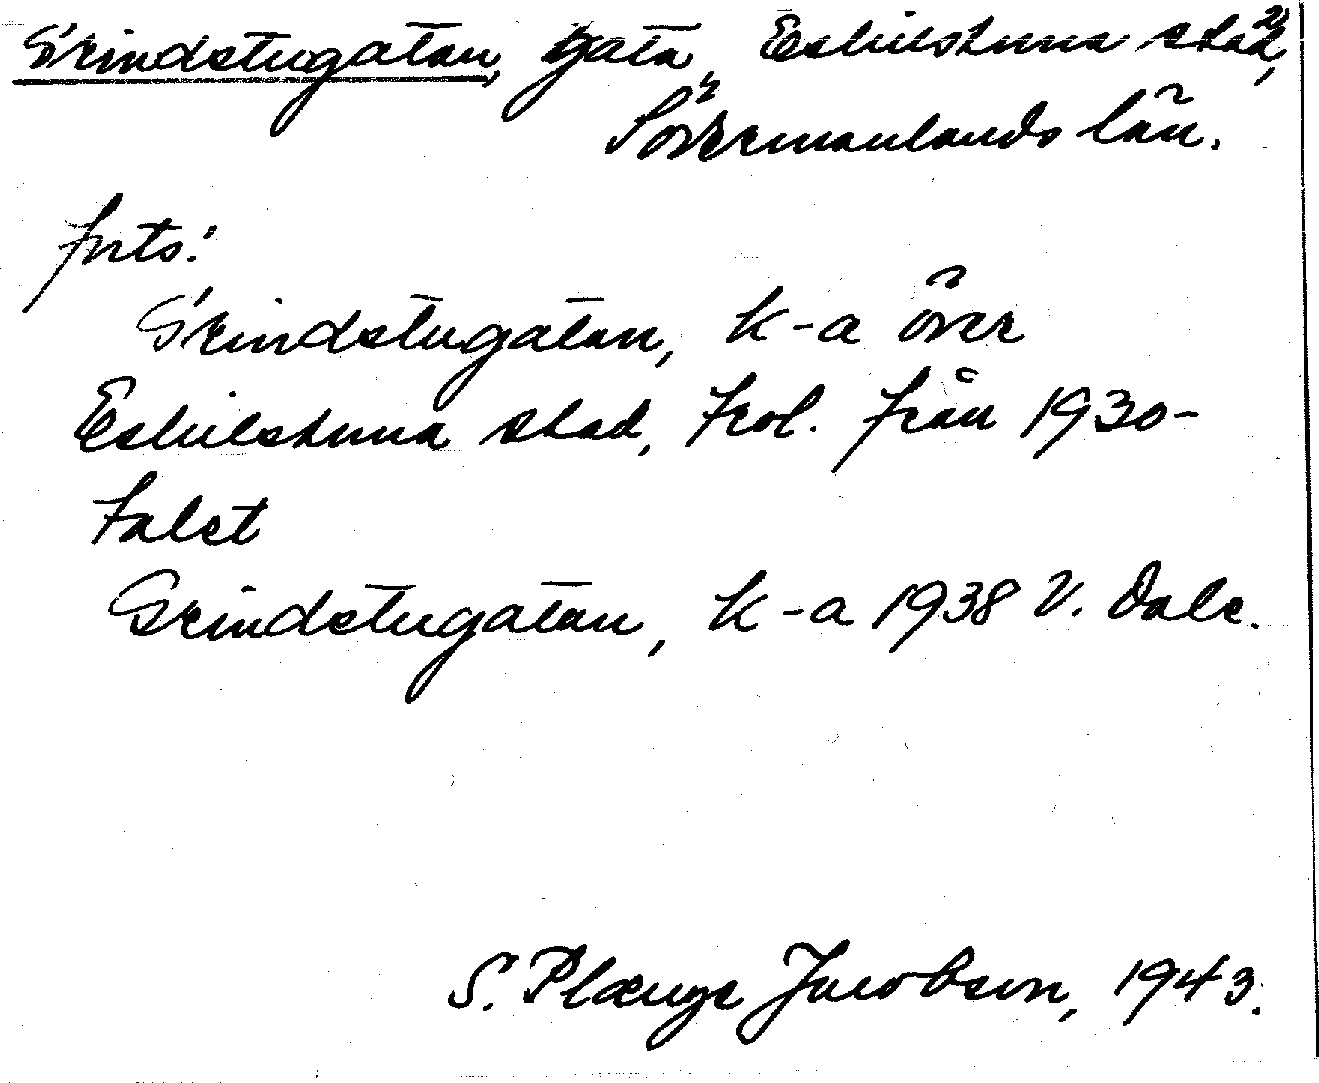 Grindstugatan, gata, Eskilstuna stad, 2)
Södermanlands län.
forts:
Grindstugatan, k-a över
Eskilstuna stad, trol. från 1930-
talet
Grindstugatan, k-a 1938 V. Dale.
S. Plænge Jacobson, 1943.